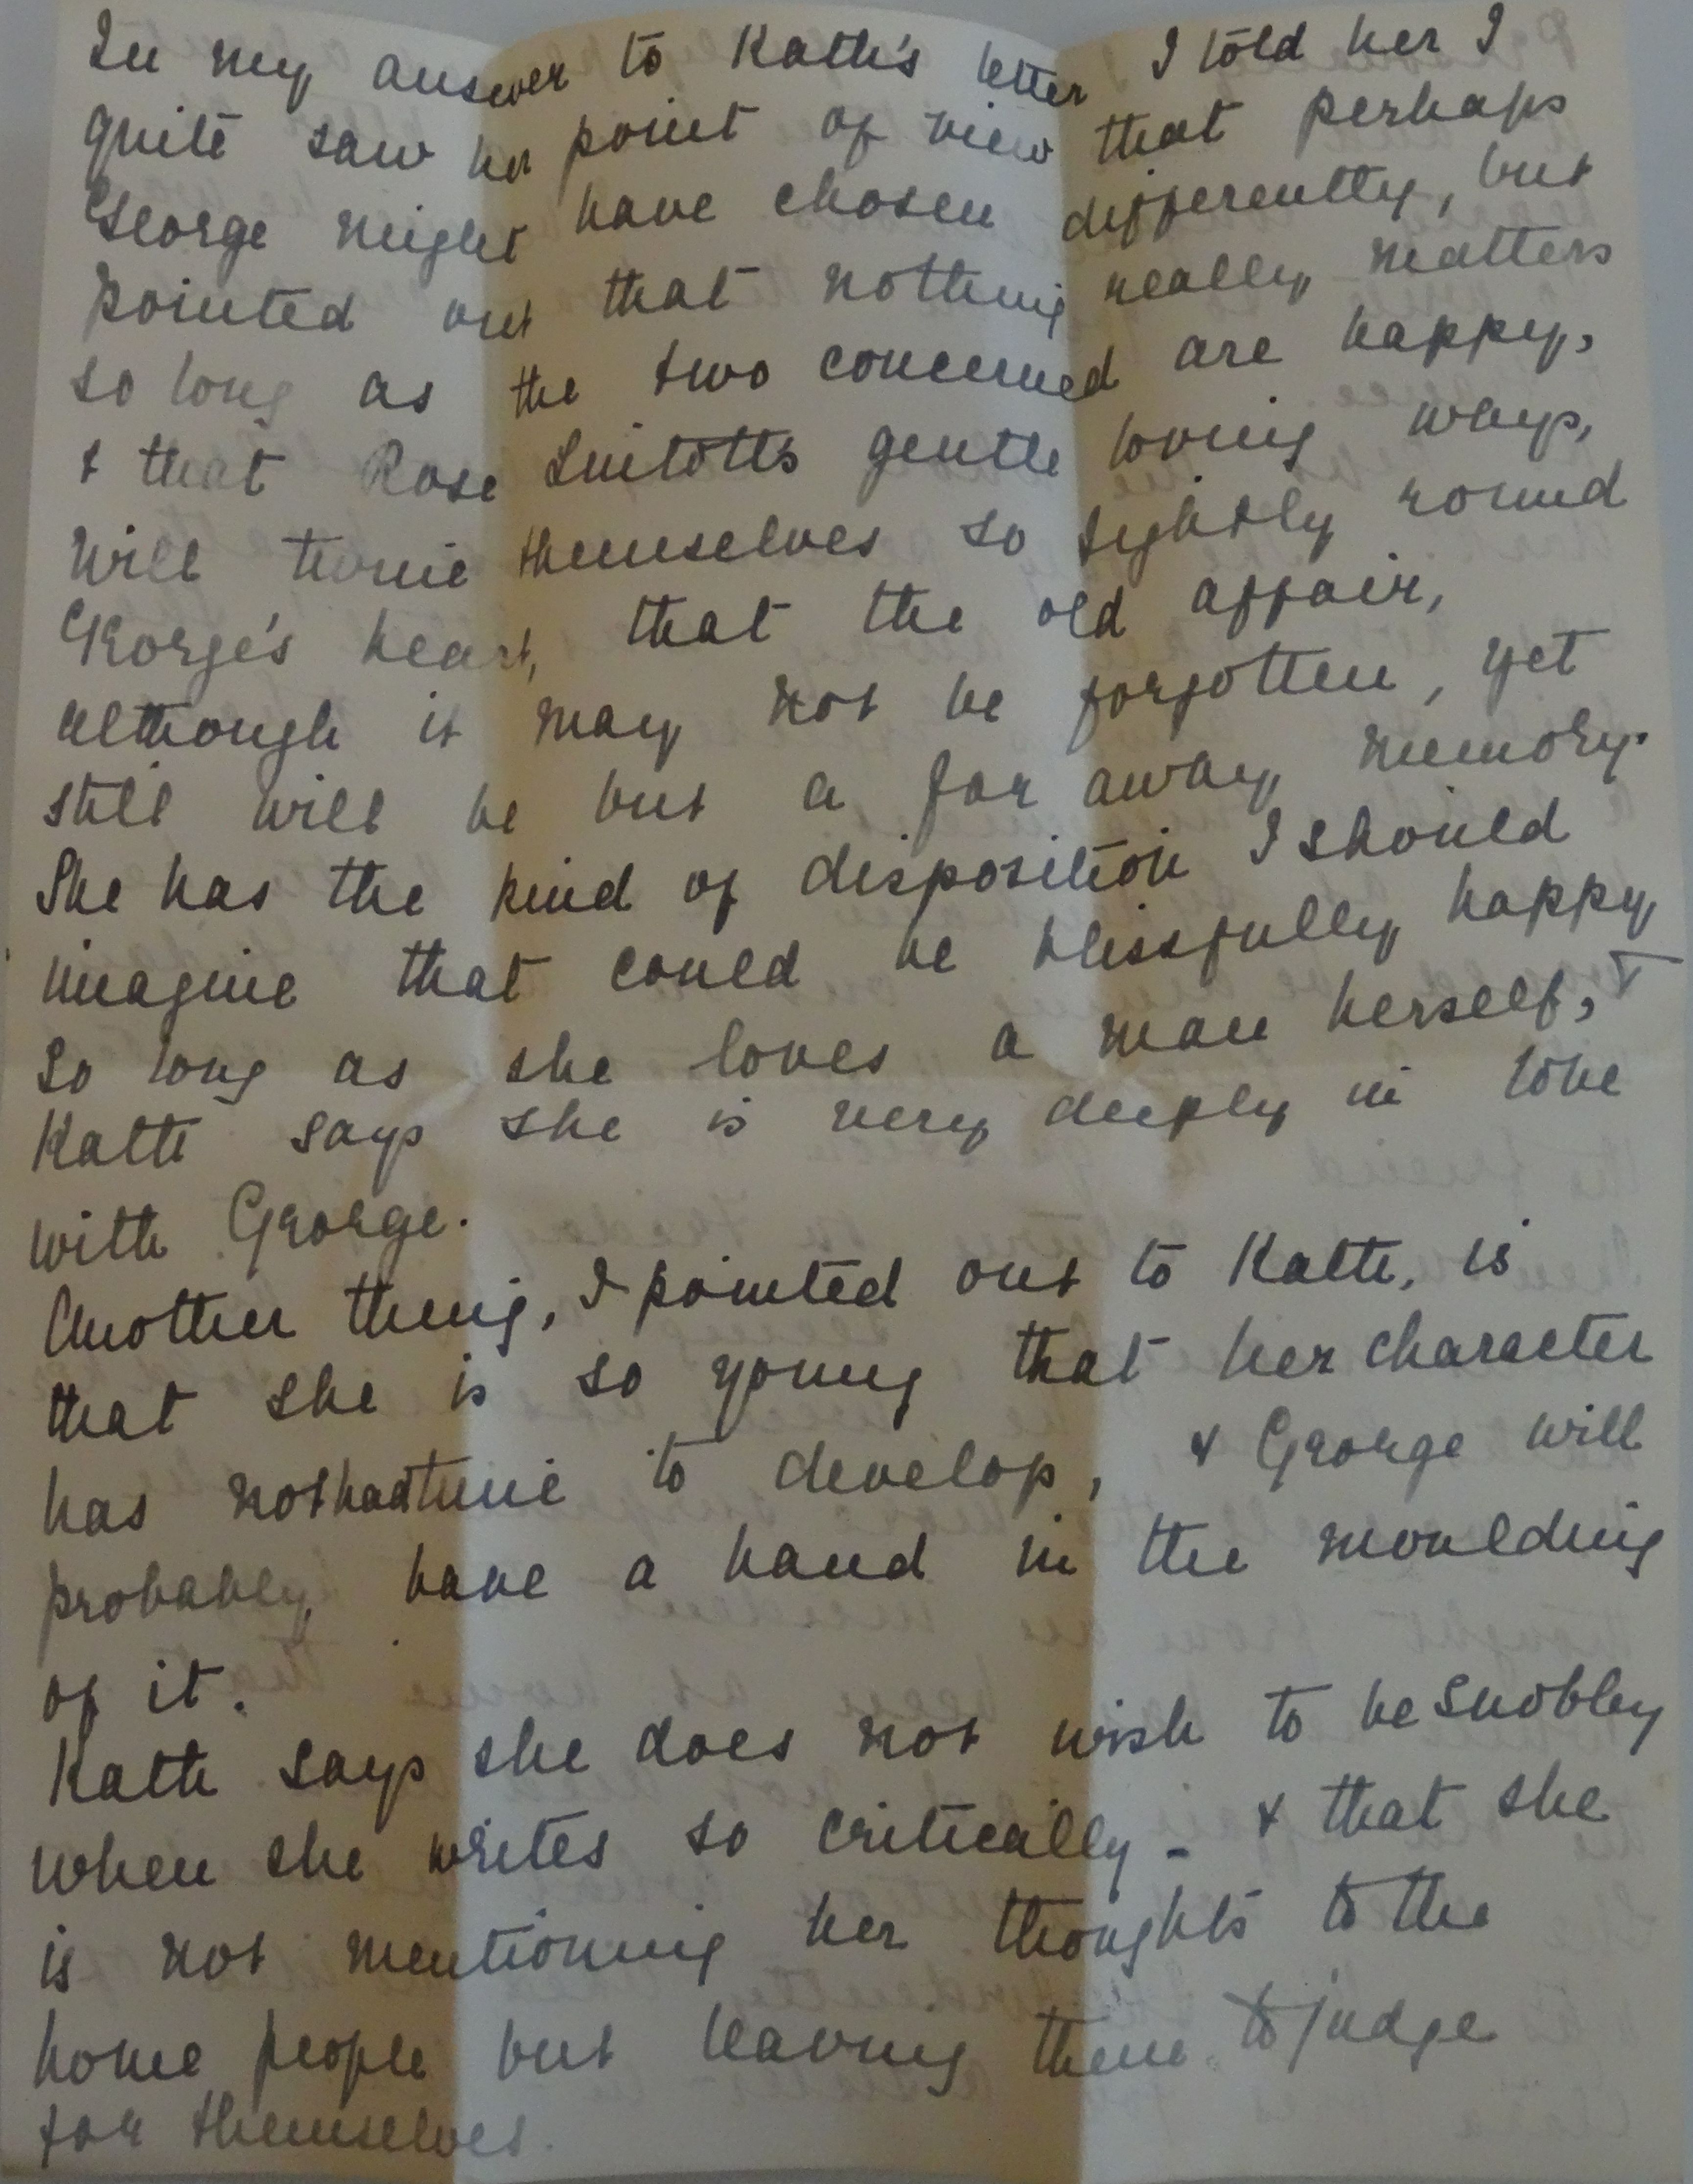 In my answer to Kath's letter I told her I
quite saw her point of view that perhaps
George might have chosen differently, but
pointed out that nothing really matters
so long as the two concerned are happy,
& that Rose gentle loving ways,
will twine themselves so tightly round
George's heart, that the old affair,
although it may not be forgotten, yet
still will be but a far away memory.
She has the kind of disposition I should
imagine that could be blissfully happy
so long as she loves a man herself, &
Kath says she is very deeply in love
with George.
Another thing, I pointed out to Kath, is
that she is so young that her character
has not had time to develop, & George will
probably have a hand in the moulding
of it.
Kath says she does not wish to be snobbey
when she writes so critically - & that she
is not mentioning her thoughts to the
home people but leaving them to judge
for themselves.